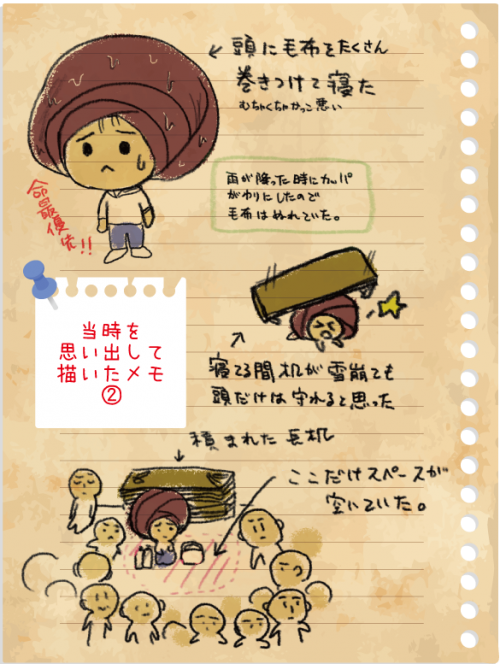 頭に毛布をたくさん
巻きつけて寝た
むちゃくちゃかっこ悪い
命最優先!!
雨が降った時にカッパ
がわりにしたので
毛布はぬれていた。
当時を
思い出して
描いたメモ
②
寝てる間机が雪崩ても
頭だけは守れると思った
積まれた長机
ここだけスペースが
空いていた。